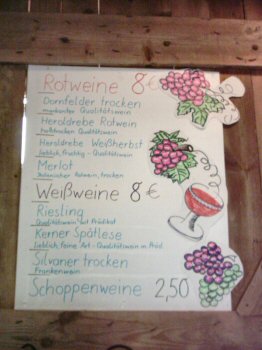 Rotweine 8€
Dornfelder trocken
Qualitätswein
Heroldrebe Rotwein
halbtrocken Qualitätswein
Heroldrebe Weißherbst
lieblich, fruchtig - Qualitätswein
Merlot
Italienischer Rotwein, trocken
Weißweine 8€
Riesling
Qualitätswein mit Prädikat
Kerner Spätlese
lieblich, feine Art - Qualitätswein m. Präd.
Silvaner trocken
Frankenwein
Schoppenweine 2,50